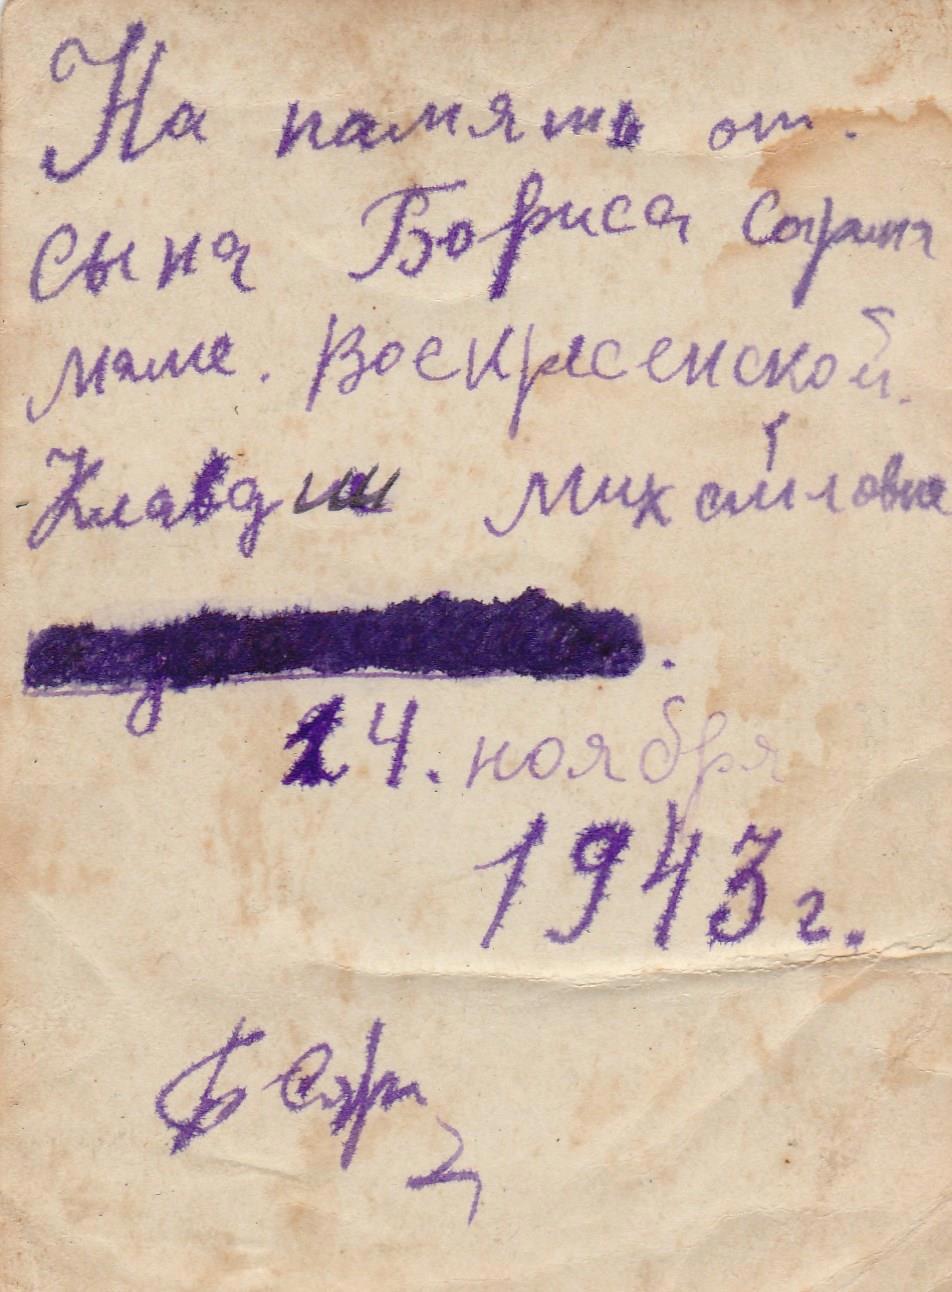 На память от.
сына Бориса
маме. Воскресенской.
Клавдии Михайловне
24. ноября
1943 г.